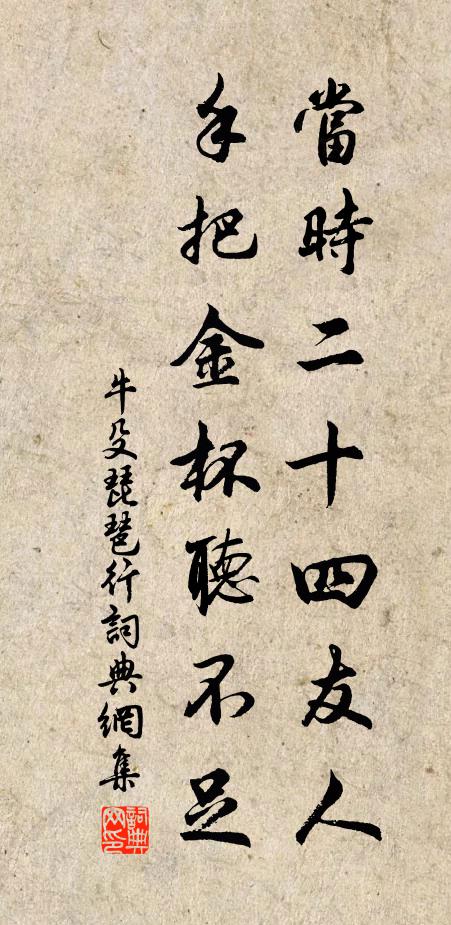 當時二十四友人
手把金杯聽不足
牛殳琵琶行詞典網集
詞典網印